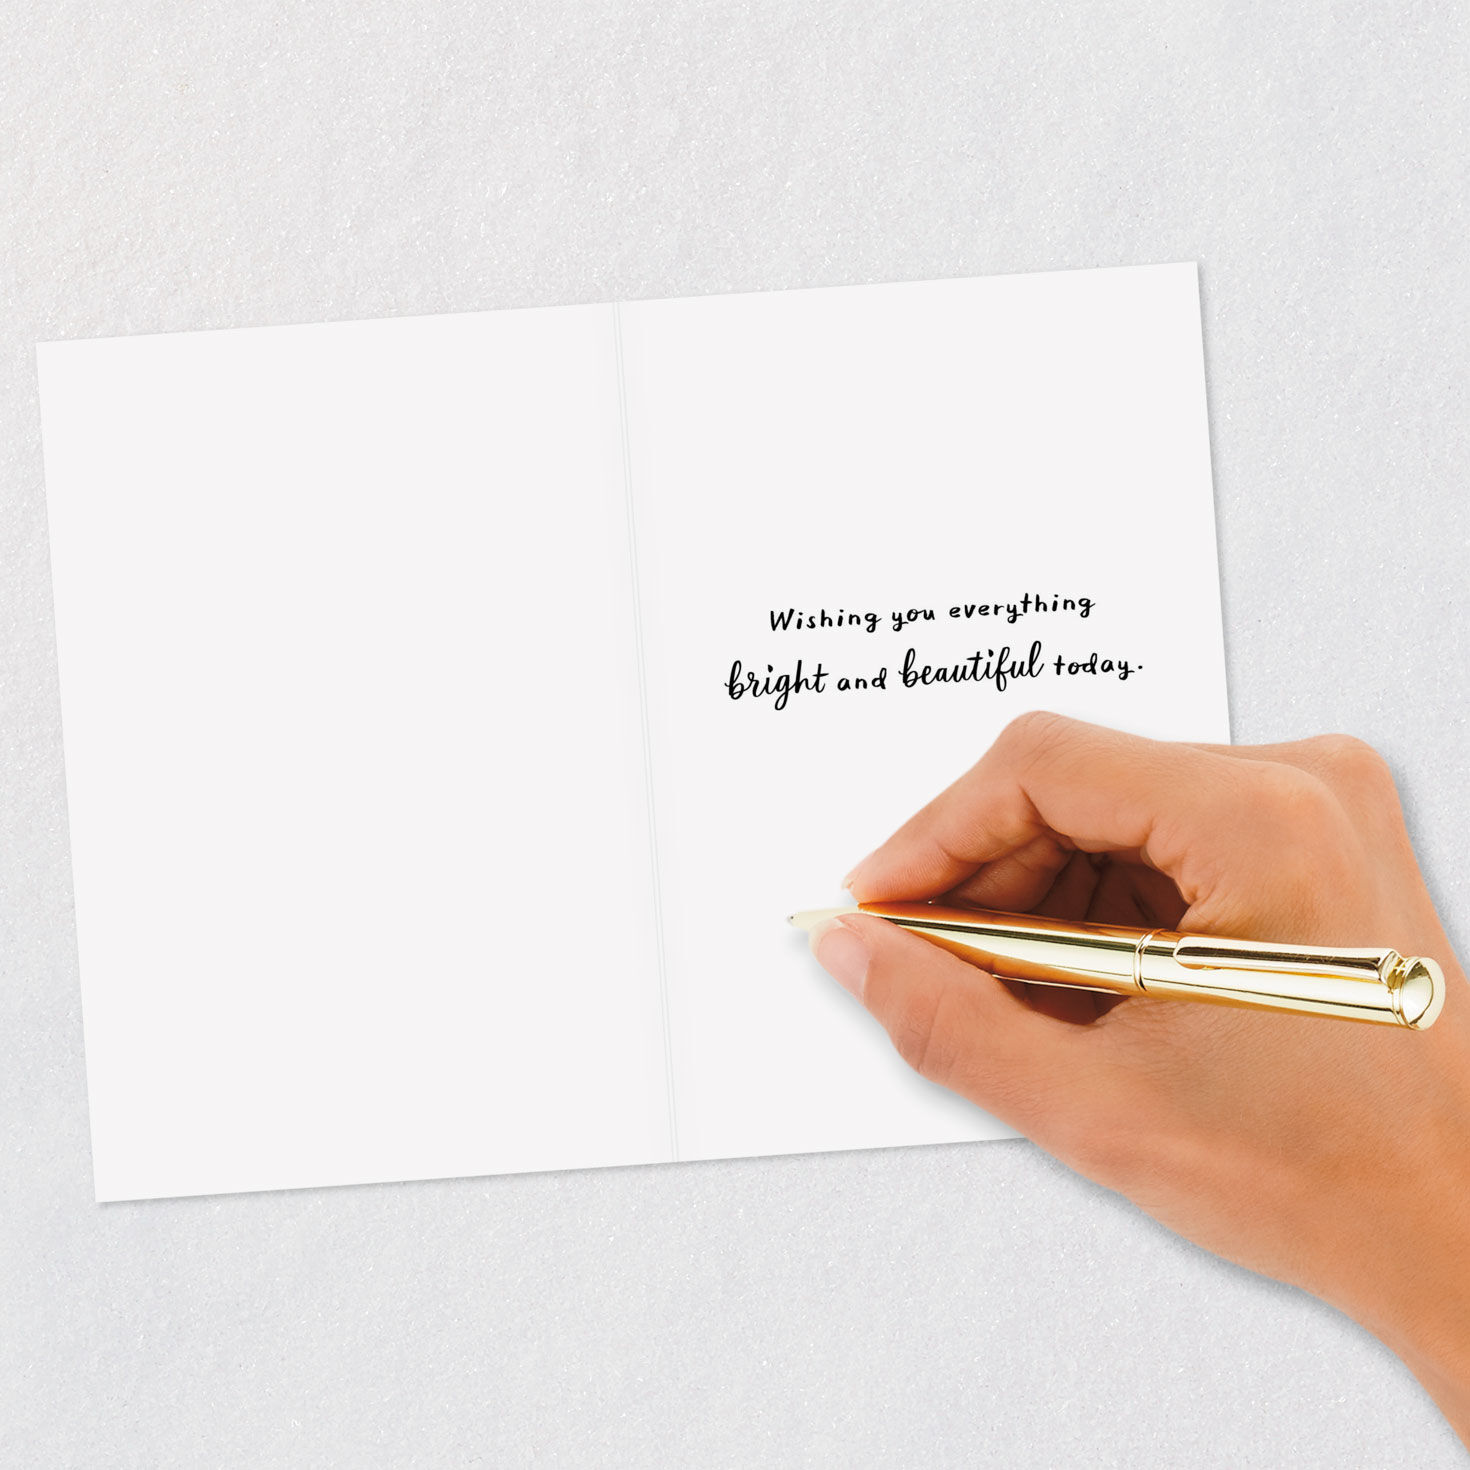 Wishing you everything
bright and beautiful today.